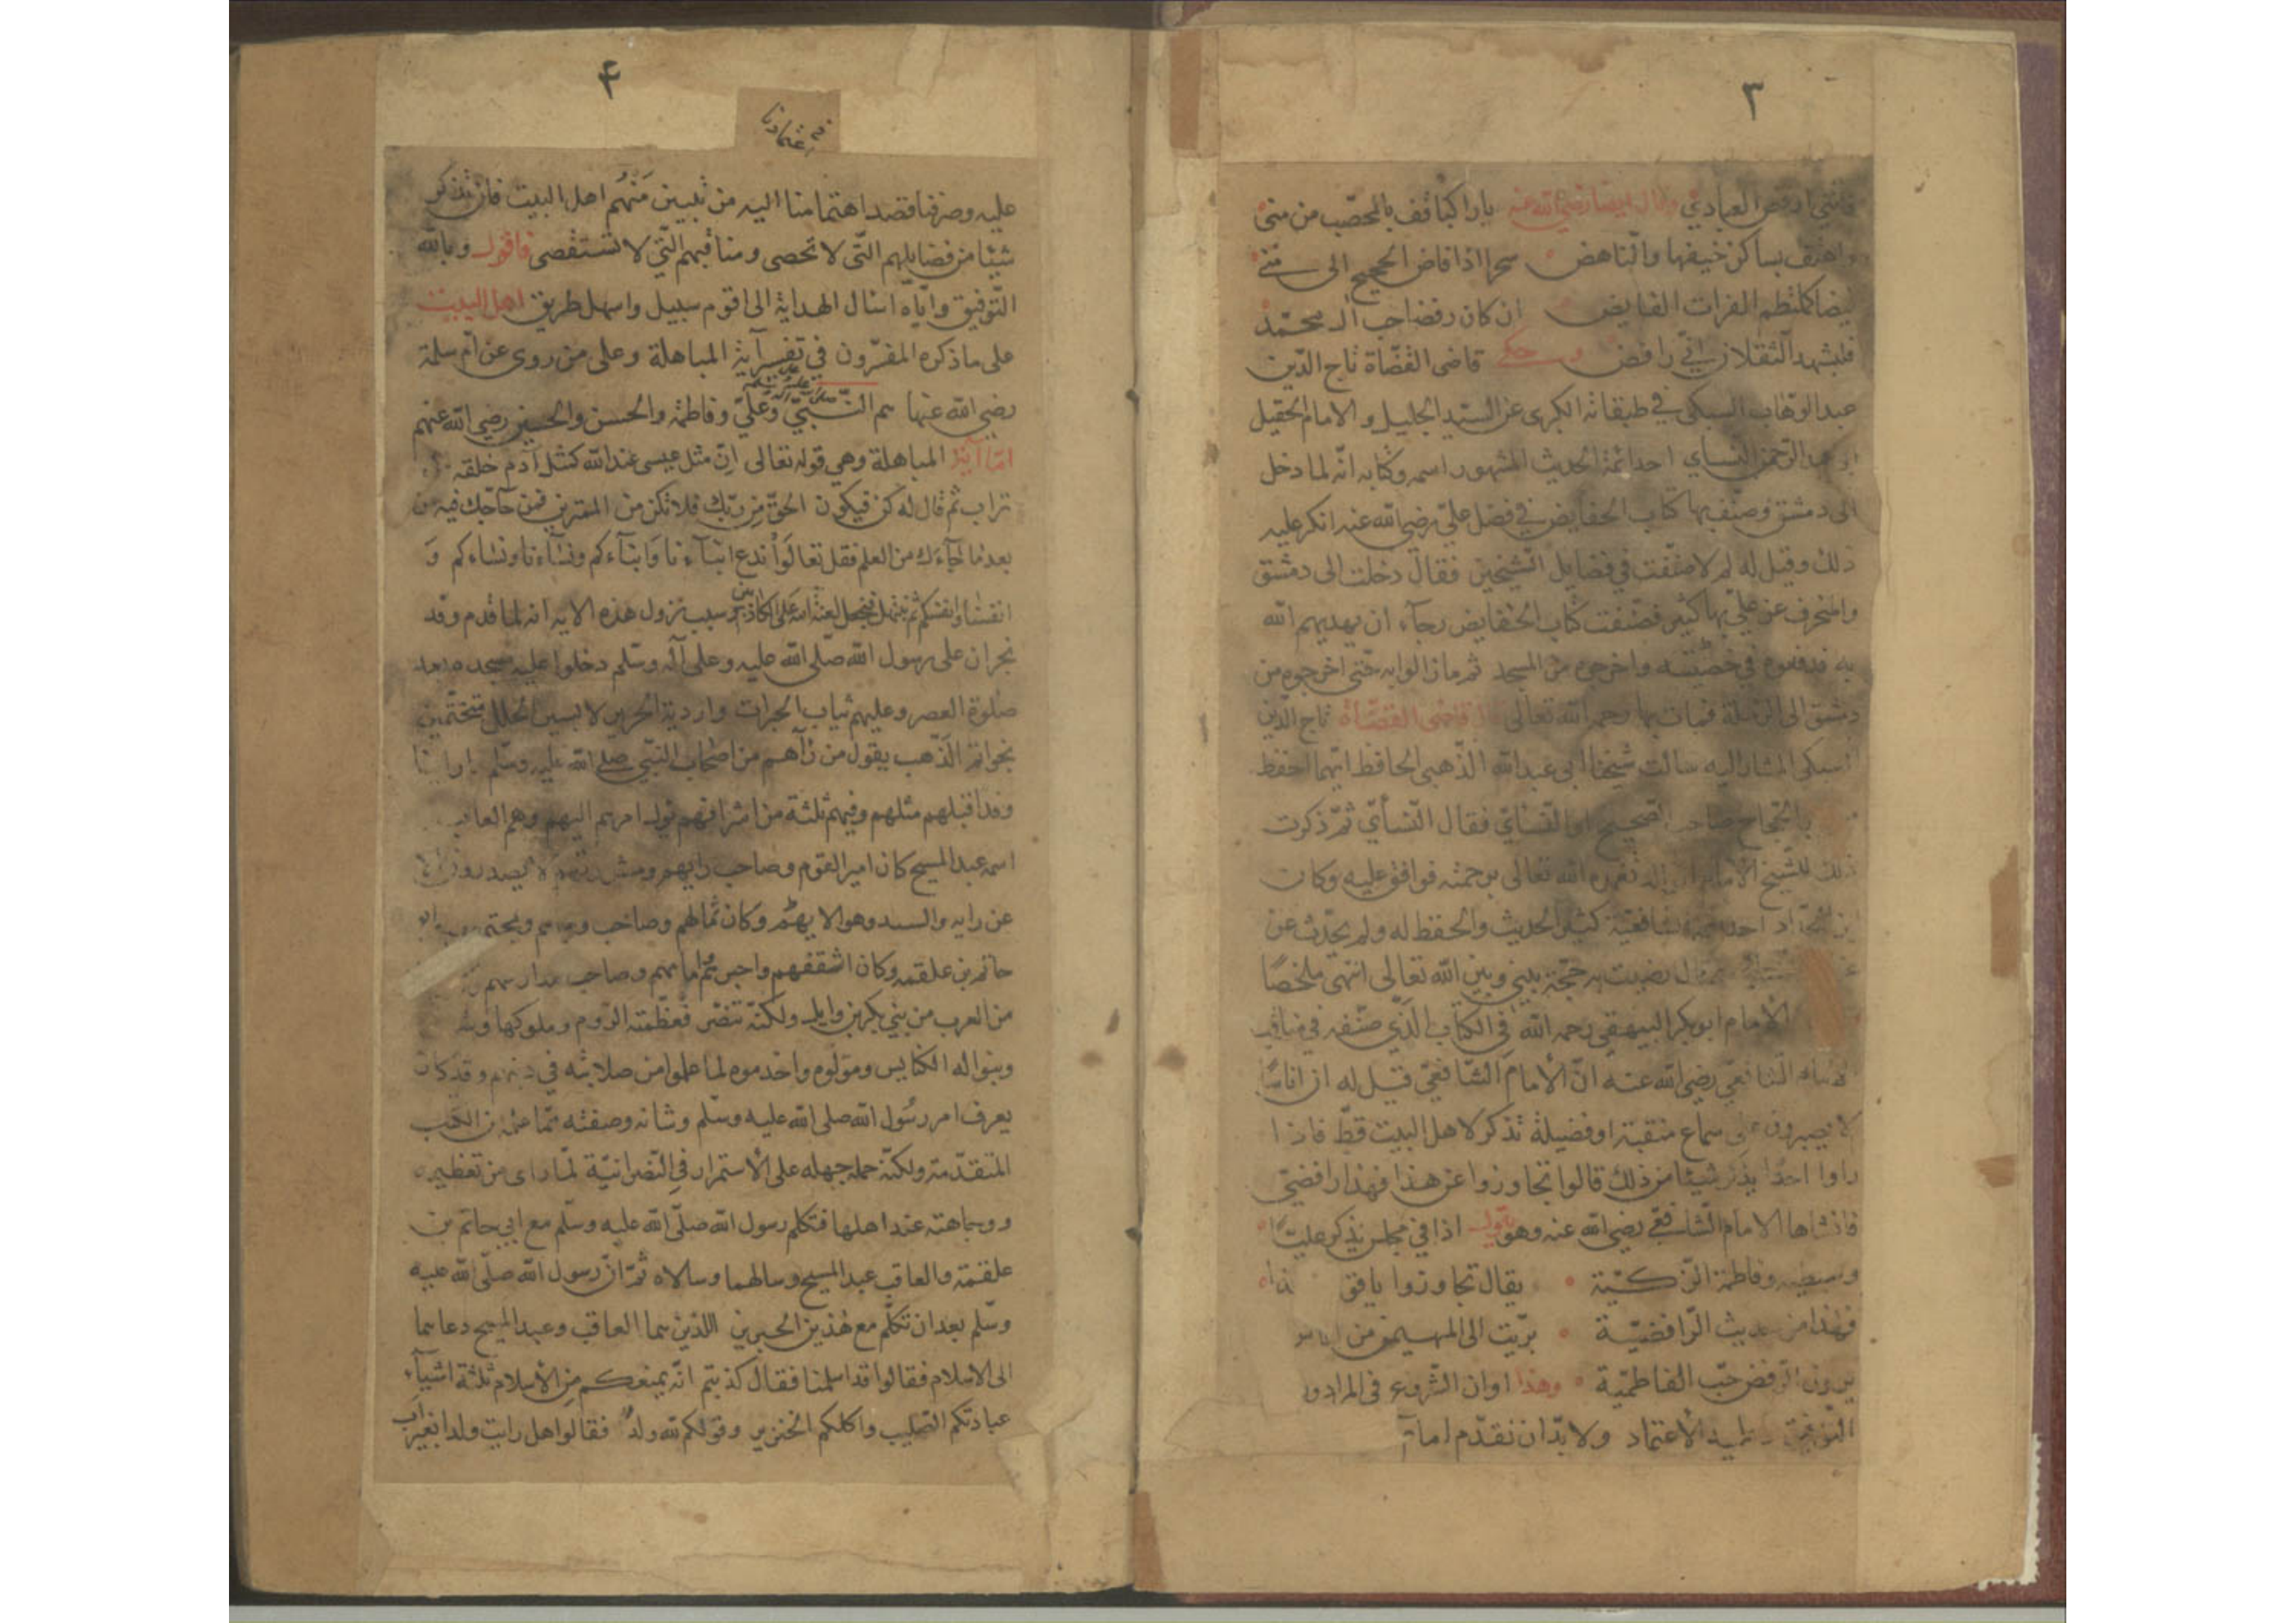 ٣
العبادي وقال ايضا رضي الله عنه يا راكبا قف بالمحصّب من منى
واهتف بساكن خيفها والنّاهض سحرا اذا فاض الحجيج الى منى
فيضا كملتطم الفرات الفايض ان كان رفضا حب آل محمّد
فليشهد الثقلان انّي رافض وحكى قاضى القضّاة تاج الدّين
عبد الوهّاب السبكى في طبقاته الكبرى عن السيّد الجليل والامام الحفيل
ابو عبد الرّحمن النّسأي احد ائمّة الحديث المشهور اسمه وكتابه انّه لما دخل
الى دمشق وصنّف بها كتاب الخصايص في فضل عليّ رضي الله عنه انكر عليه
ذلك وقيل له لم لا صنّفت في فضايل الشّيخين فقال دخلت الى دمشق
والمنحرف عن عليّ بها كثير فصنّفت كتاب الخصايص رجآء ان يهديهم الله
به فدفعوه في خصيتيه واخرجوه من المسجد ثم مازالوا به حتّى اخرجوه من
دمشق الى الرملة فمات بها رحمه الله تعالى قاضى القضّاة تاج الدّين
السبكى المشار اليه سالت شيخنا ابى عبد الله الذّهبى الحافظ ايّهما احفظ
بالحجّاج صاحب الصّحيح او النّسأيّ فقال النّسأيّ ثمّ ذكرت
ذلك للشّيخ الامام الوالد تغمّده الله تعالى برحمته فوافق عليه وكان
ابن الحدّاد احد الشافعيّة كثير الحديث والحفظ له ولم يحدّث عن
وقال رضيت به حجّة بيني وبين الله تعالى انتهى ملخصًا
الامام ابو بكر البيهقى رحمه الله في الكتاب الّذي صنّفه في مناقب
الامام الشّافعيّ رضي الله عنه انّ الامام الشّافعيّ قيل له ان اناسًا
لا يصبرون على سماع منقبة او فضيلة تذكر لاهل البيت قطّ فاذا
راوا احدًا يذكر شيئا من ذلك قالوا تجاوزوا عن هذا فهذا رافضيّ
فانشاها الامام الشّافعي رضي الله عنه وهو يقول اذا في مجلس يذكر عليّا
وسبطيه وفاطمة الزّكيّة يقال تجاوزوا يا قوم هذا
فهذا من حديث الرّافضيّة بريت الى المهيمن من اناس
يرون الرفض حبّ الفاطميّة وهذا اوان الشّروع فى المراد و
التّوفيق الاعتماد ولا بدّ ان نقدّم امام
٤
عليه وصرفنا قصد اهتمامنا اليه من تبيين مَنهُم اهل البيت فان تذكر
شيئا من فضايلهم التّى لا تحصى ومناقبهم التّي لا تستقصى فاقول وبالله
التّوفيق وايّاه اسال الهداية الى اقوم سبيل واسهل طريق اهل البيت
على ما ذكره المفسّرون في تفسير آية المباهلة وعلى من روى عن امّ سلمة
رضي الله عنها هم النّبيّ وعليّ وفاطمة والحسن والحسين رضي الله عنهم
امّا آية المباهلة وهي قوله تعالى انّ مثل عيسى عند الله كمثل آدم خلقه من
تراب ثم قال له كن فيكون الحقّ من ربّك فلا تكن من الممترين فمن حآجّك فيه من
بعد ما جآءك من العلم فقل تعالَوا ندع ابنآءنا وَابنآءكم ونسآءنا ونساءكم وَ
انفسنا وانفسكم ثم نبتهل فنجعل لعنة الله على الكاذبين وسبب نزول هذه الايه انه لما قدم وفد
نجران على رسول الله صلّى الله عليه وعلى آله وسّلم دخلوا عليه مسجده بعد
صلوة العصر وعليهم ثياب الحبرات واردية الحرير لابسين الحلل متختّمين
بخواتم الذّهب يقول من رآهم من اصحاب النّبي صلى الله عليه وسلّم ما راينا
وفدا قبلهم مثلهم وفيهم ثلثة من اشرافهم يول امرهم اليهم وهم العاقب
اسمه عبد المسيح كان امير القوم وصاحب رايهم ومشورتهم لا يصدرون الا
عن رايه والسيد وهو الايهم وكان ثمالهم وصاحب رحلهم ومجتمعهم وابو
حاتم بن علقمه وكان اسقفهم وحبرهم وامامهم وصاحب مدارسهم
من العرب من بني بكر بن وايل ولكنّه تنصّر فعظّمته الروم وملوكها
وبنوا له الكنايس ومولوه واخدموه لما علموا من صلابته في دينهم وقد كان
يعرف امر رسُول الله صلى الله عليه وسلّم وشانه وصفته ممّا علمه من الكتب
المتقدّمة ولكنّه حمله جهله على الاستمرار في النّصرانيّة لمّا راى من تعظيمه
ووجاهته عند اهلها فتكلم رسول الله صلّى الله عليه وسلّم مع ابي حاتم بن
علقمة والعاقب عبد المسيح وسالهما وسالاه ثمّ انّ رسول الله صلّى الله عليه
وسلّم بعد ان تكلّم مع هٰذين الحبرين اللذين هما العاقب وعبد المسيح دعاهما
الى الاسلام فقالوا قد اسلمنا فقال كذبتم انّه يمنعكم من الاسلام ثلثة اشيآء
عبادتكم الصّليب واكلكم الخنزير وقولكم لله ولدٌ فقالوا هل رايت ولدا بغير اب